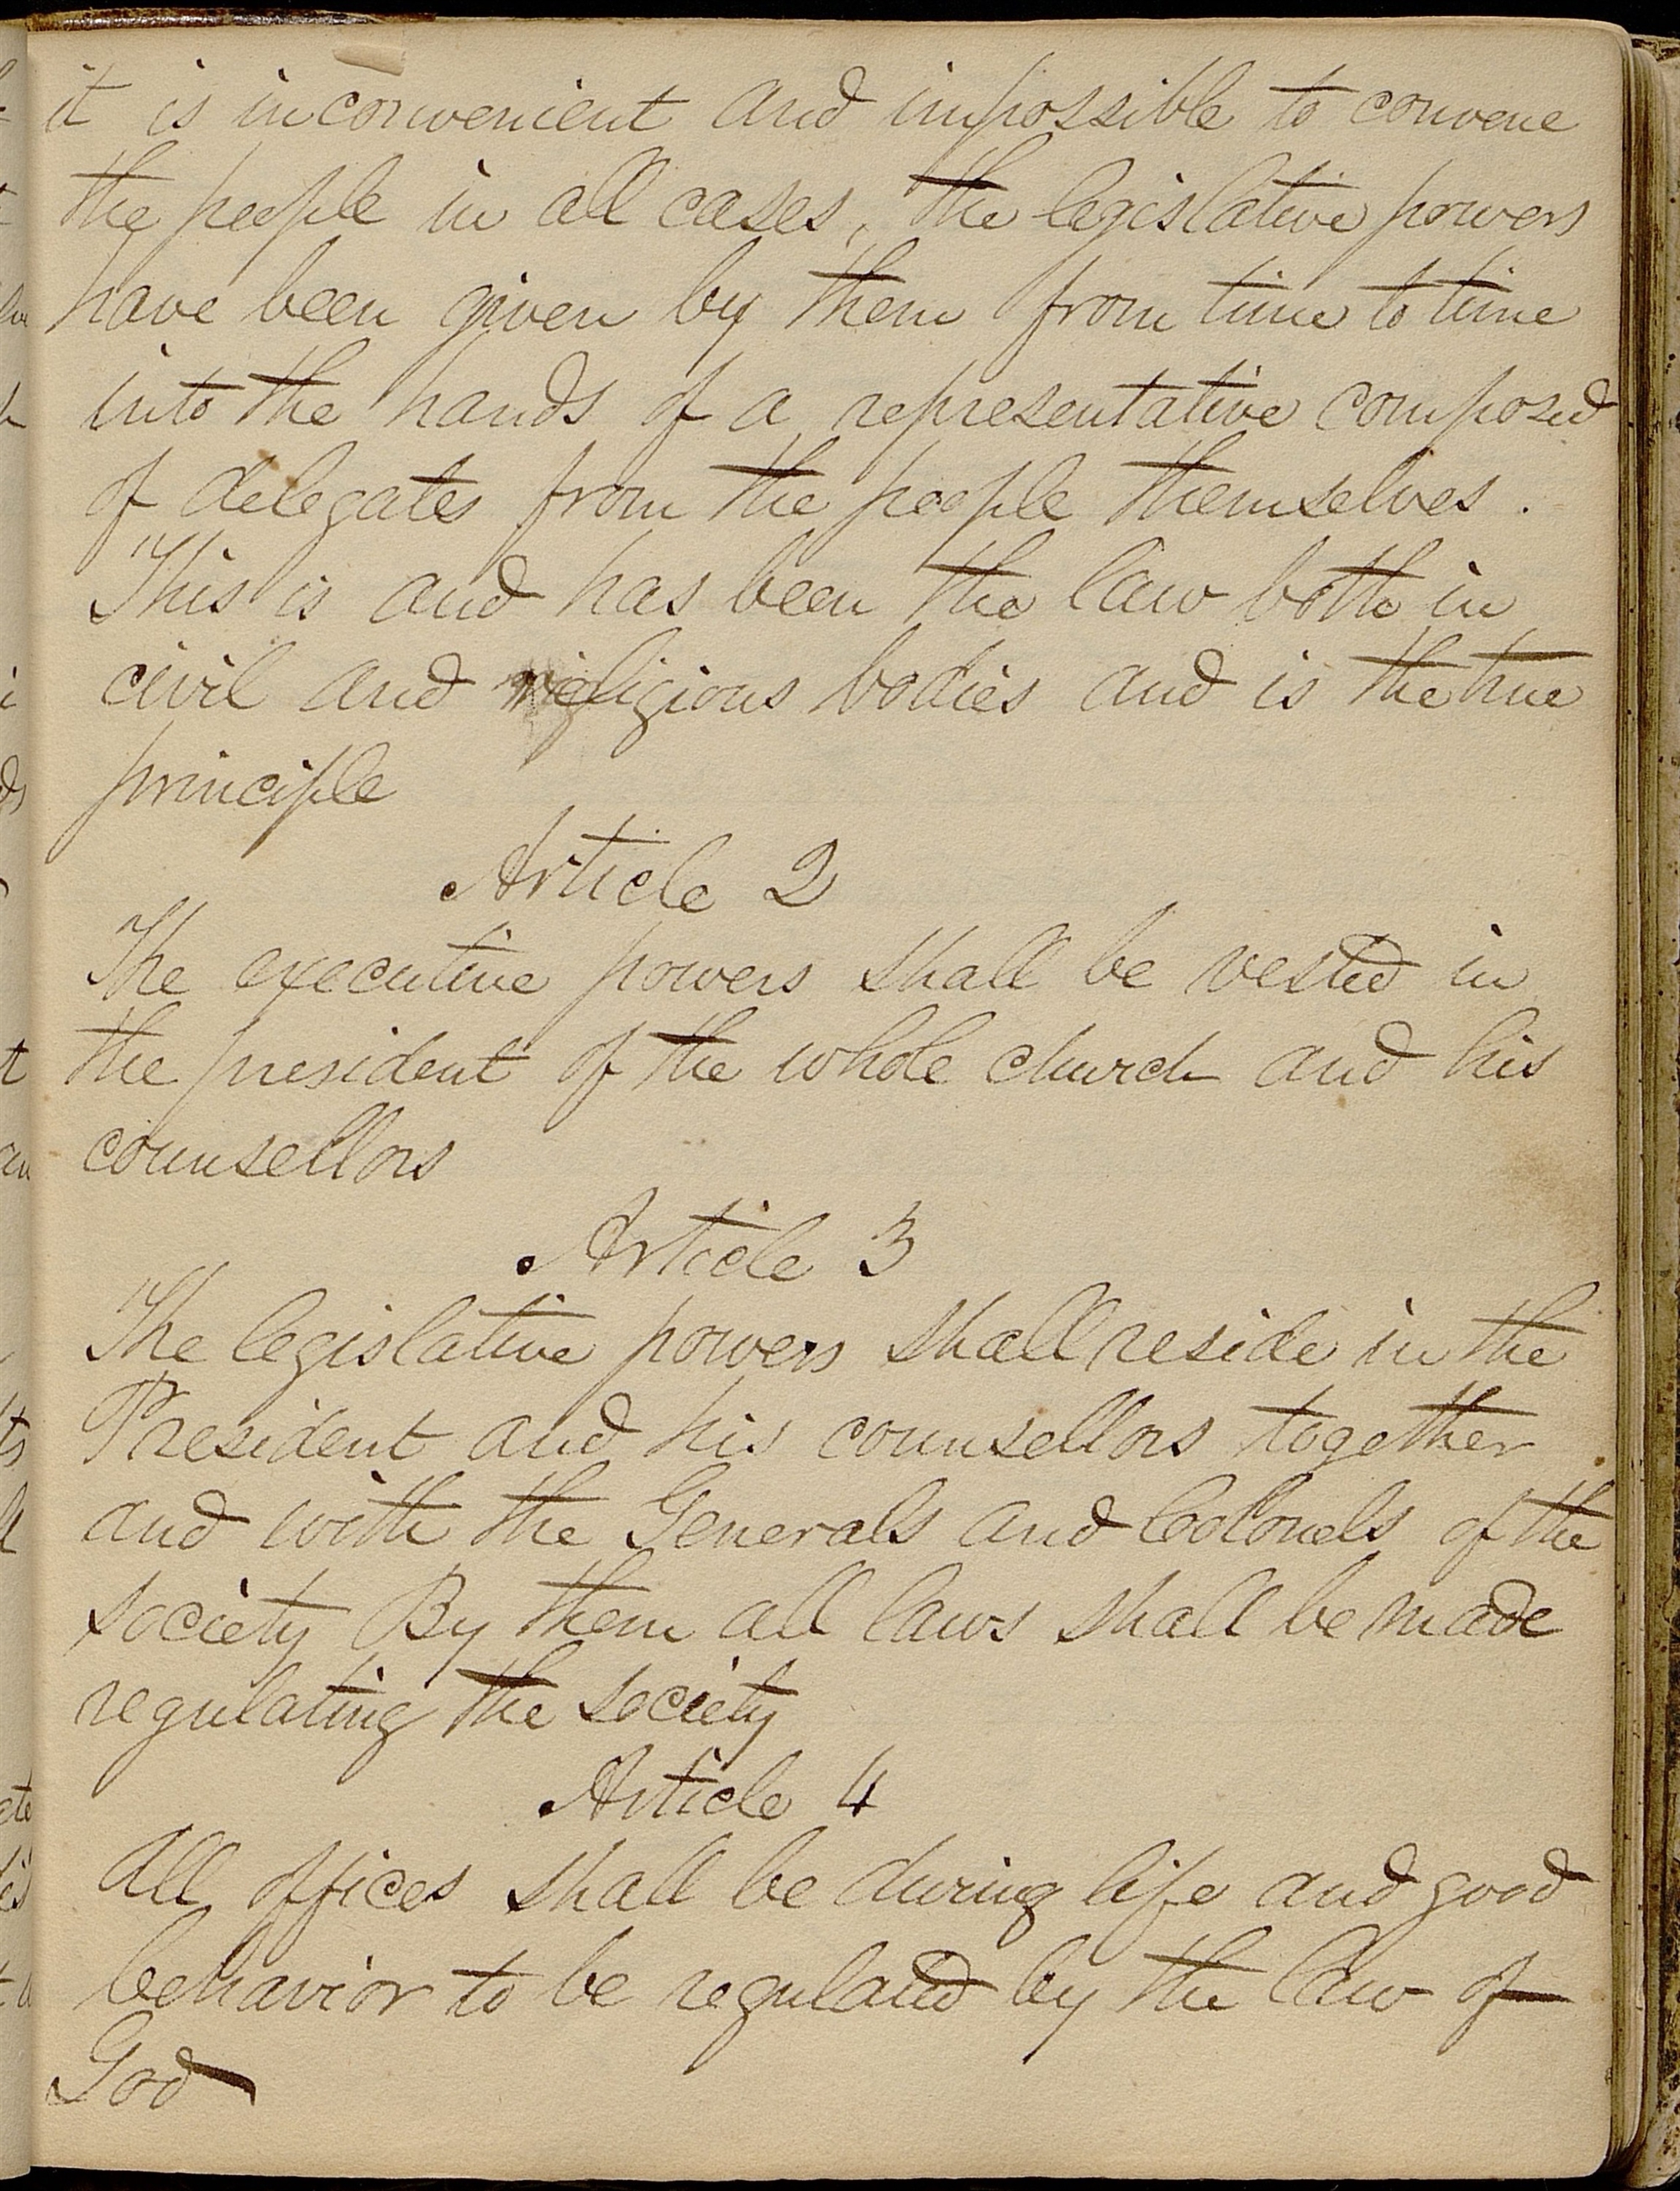 it is inconvenient and impossible to convene
the people in all cases, the legislative powers
have been given by them from time to time
into the hands of a representative composed
of delegates from the people themselves.
This is and has been the law both in
civil and religious bodies and is the true
principle
Article 2
The executive powers shall be vested in
the president of the whole church and his
counsellors
Article 3
The legislative powers shall reside in the
President and his counsellors together
and with the Generals and Colonels of the
society By them all laws shall be made
regulating the society
Article 4
All offices shall be during life and good
behavior to be regulated by the law of
God